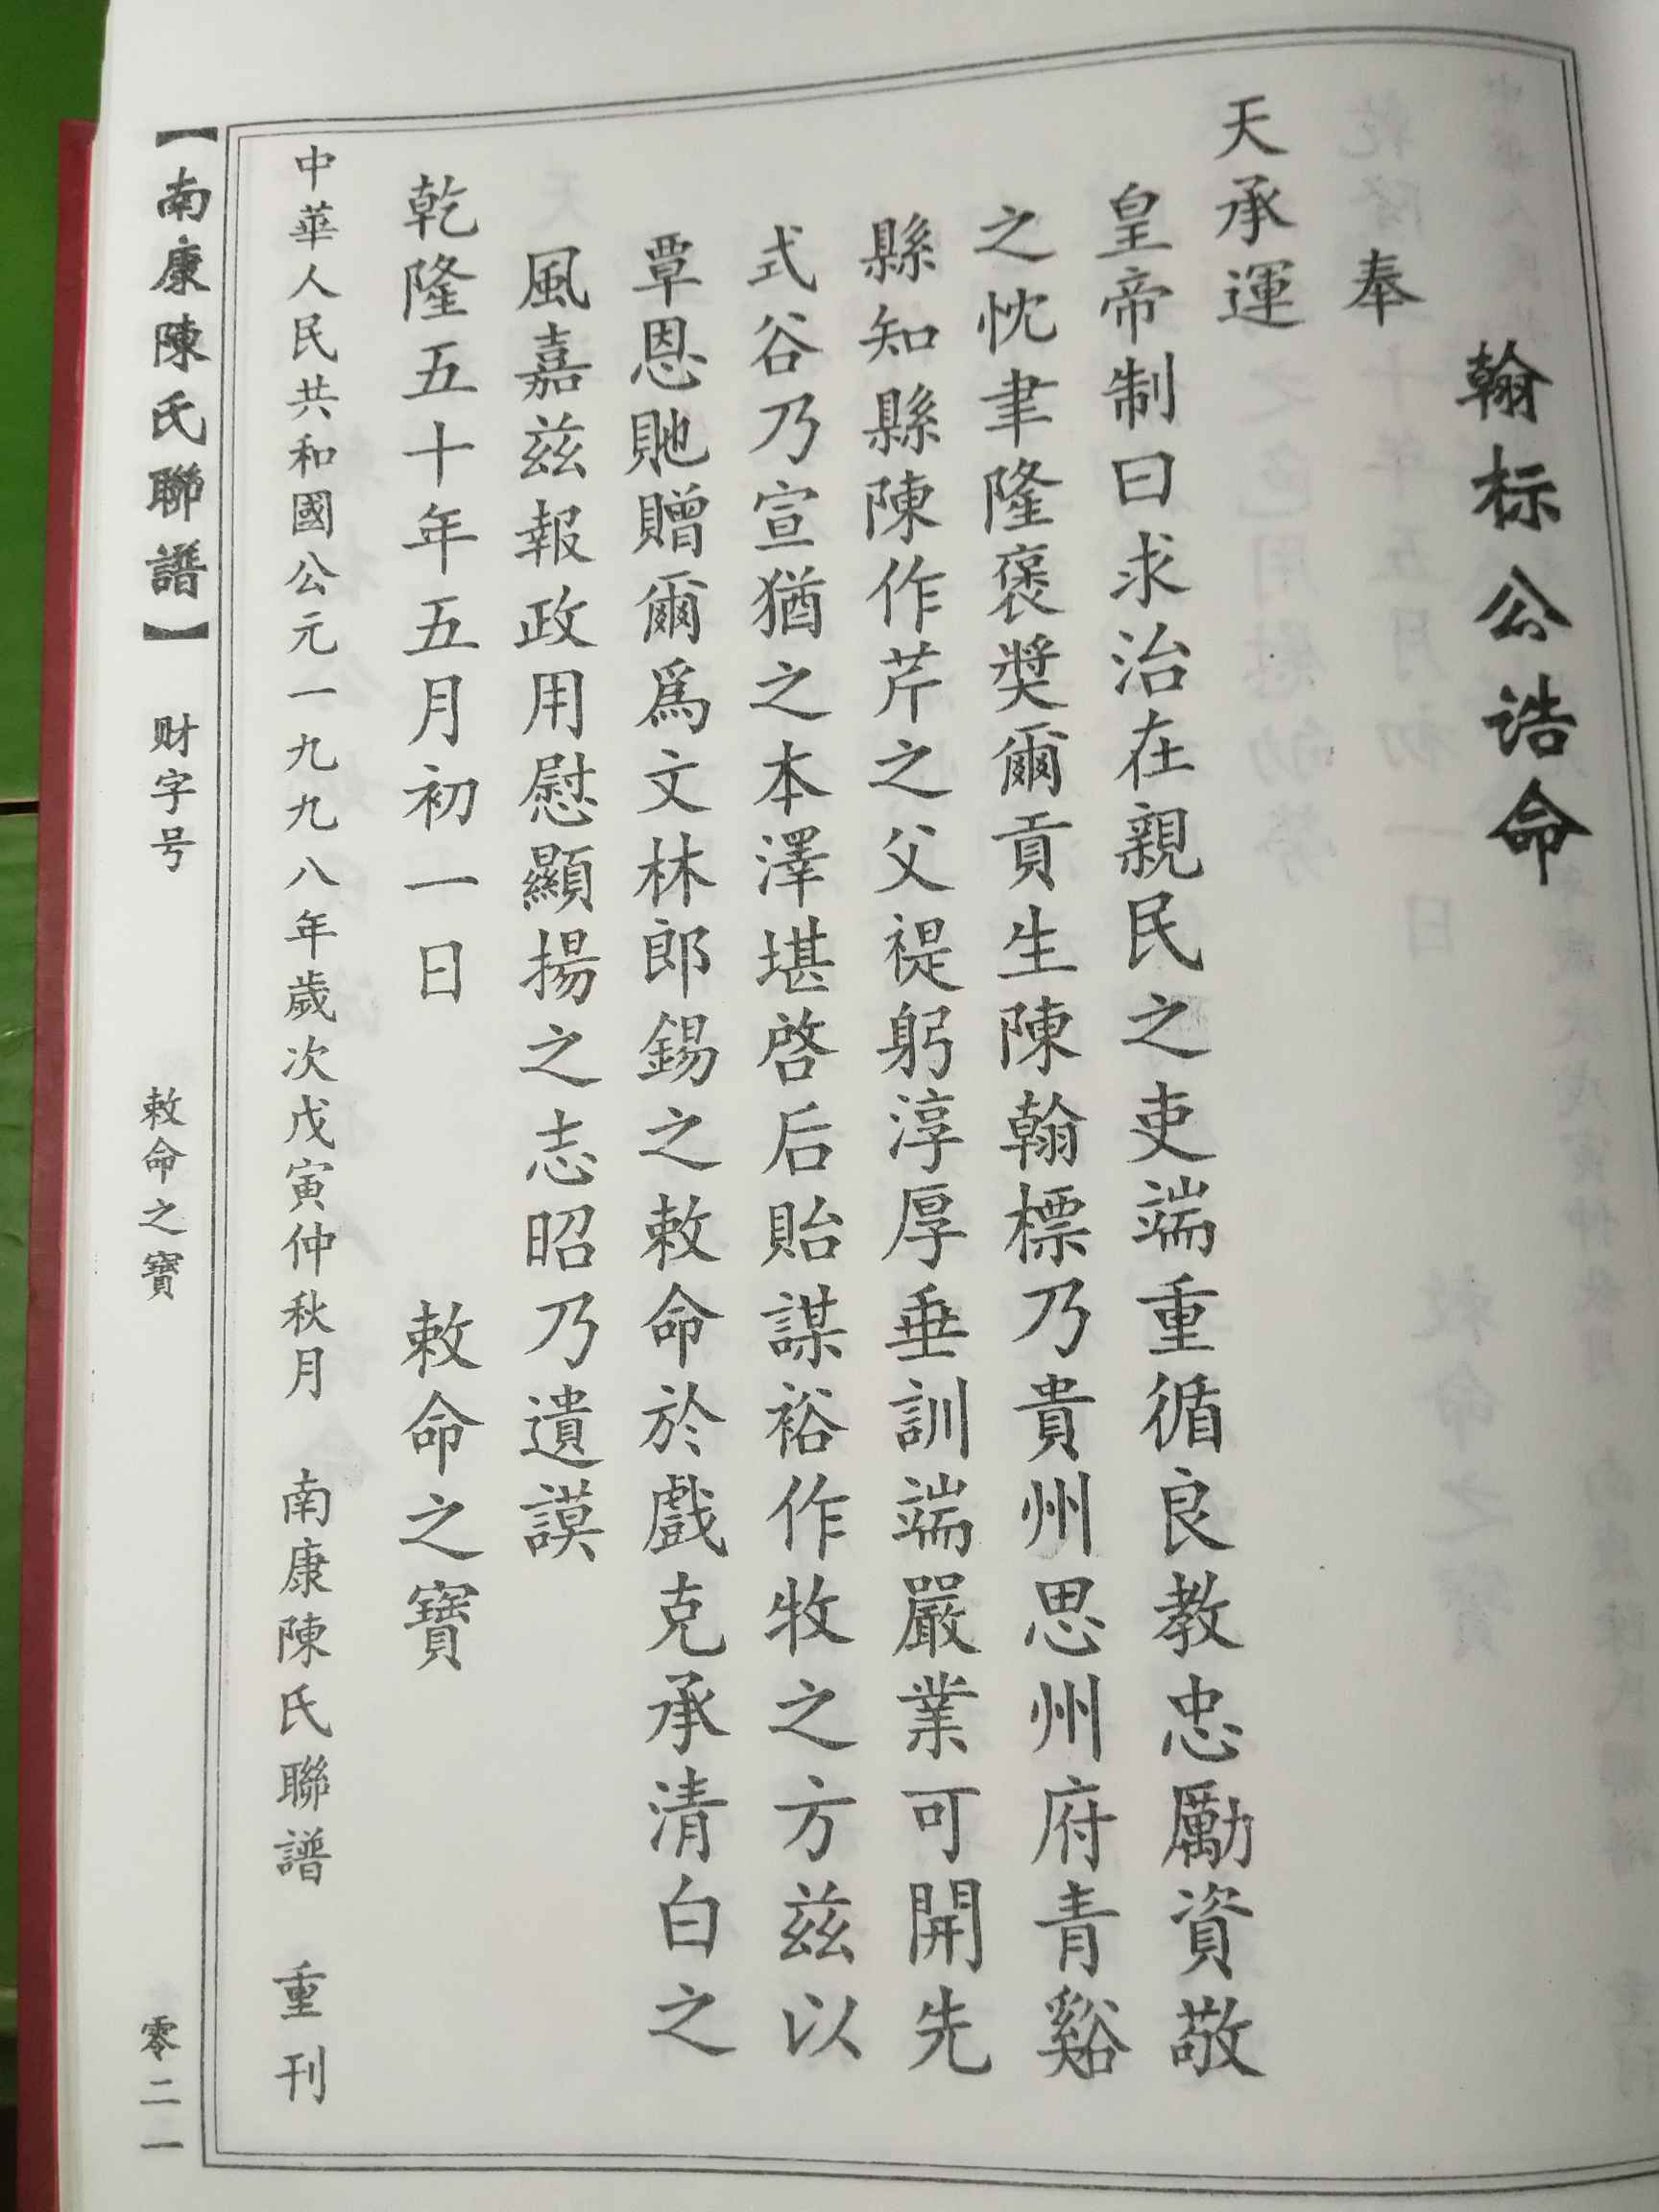 翰标公诰命
奉
天承運
皇帝制曰求治在親民之吏端重循良教忠勵資敬
之忱聿隆褒獎爾貢生陳翰標乃貴州思州府青谿
縣知縣陳作芹之父禔躬淳厚垂訓端嚴業可開先
式谷乃宣猶之本澤堪啓后貽謀裕作牧之方兹以
覃恩貤贈爾爲文林郎錫之敕命於戲克承清白之
風嘉兹報政用慰顯揚之志昭乃遺謨
乾隆五十年五月初一日 敕命之寶
中華人民共和國公元一九九八年歲次戊寅仲秋月 南康陳氏聯譜 重刊
【南康陳氏聯譜】 财字号 敕命之寶 零二一